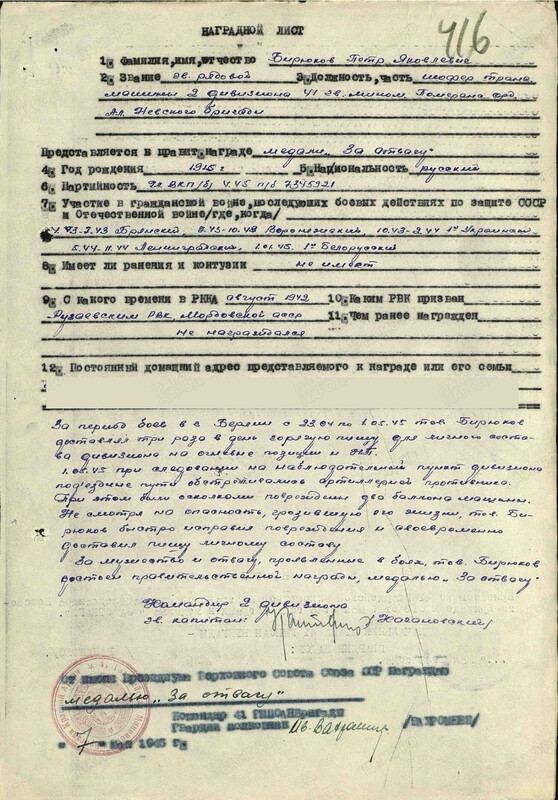 416
НАГРАДНОЙ ЛИСТ
1. Фамилия,имя,отчество Бирюков Петр Яковлевич
2. Звание гв. рядовой 3. Должность,часть шофер транс.
машины 2 дивизиона 41 гв. мином. Померан. орд.
Ал. Невского бригады
Представляется к правит.награде медали „За отвагу"
4. Год рождения 1915 г 5. Национальность русский
6. Партийность чл ВКП/б/ 4.45 п/б 7345921
7. Участие в гражданской войне,последующих боевых действиях по защите СССР
и Отечественной войне/где,когда/
Брянский, Воронежский, 10.43-2.44 1й Украинск
5.44-11.44 Ленинградский, 1.01.45. 1й Белорусский
8. Имеет ли ранения и контузии не имеет
9. С какого времени в РККА август 1942 10. Каким РВК призван
Рузаевским РВК Мордовской АССР 11. Чем ранее награжден
Не награждался
12. Постоянный домашний адрес представляемого к награде или его семьи
За период боев в г. Берлин с 23.04 по 1.05.45 тов. Бирюков
доставлял три раза в день горячую пищу для личного соста-
ва дивизиона на огневые позиции и НП.
1.05.45 при следовании на наблюдательный пункт дивизиона
подъездные пути обстреливались артиллерией противника.
При этом были осколками повреждены два баллона машины.
Не смотря на опасность, грозившую его жизни, тов. Би-
рюков быстро исправил повреждения и своевременно
доставил пищу личному составу
За мужество и отвагу, проявленные в боях, тов. Бирюков
достоин правительственной награды, медалью „За отвагу"
Командир 2 дивизиона
гв. капитан: /Кагановский/
От имени Президиума Верховного Совета Союза ССР Награждаю
медалью „За отвагу"
Командир 41 Бригады
Гвардии полковник /ВАХРОМЕЕВ/
" 7 " Мая 1945 г.